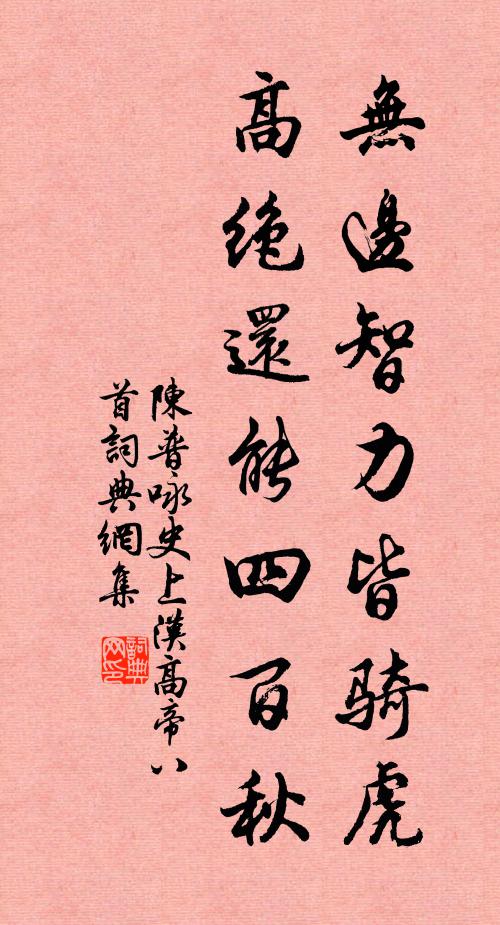 無邊智力皆騎虎
高絶還能四百秋
陳普咏史上漢高帝八
首詞典網集
詞典
网印